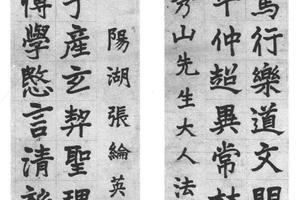 行樂道文
仲超異常
秀山先生大人法
陽湖張綸英
產玄契聖理
博學愍言清